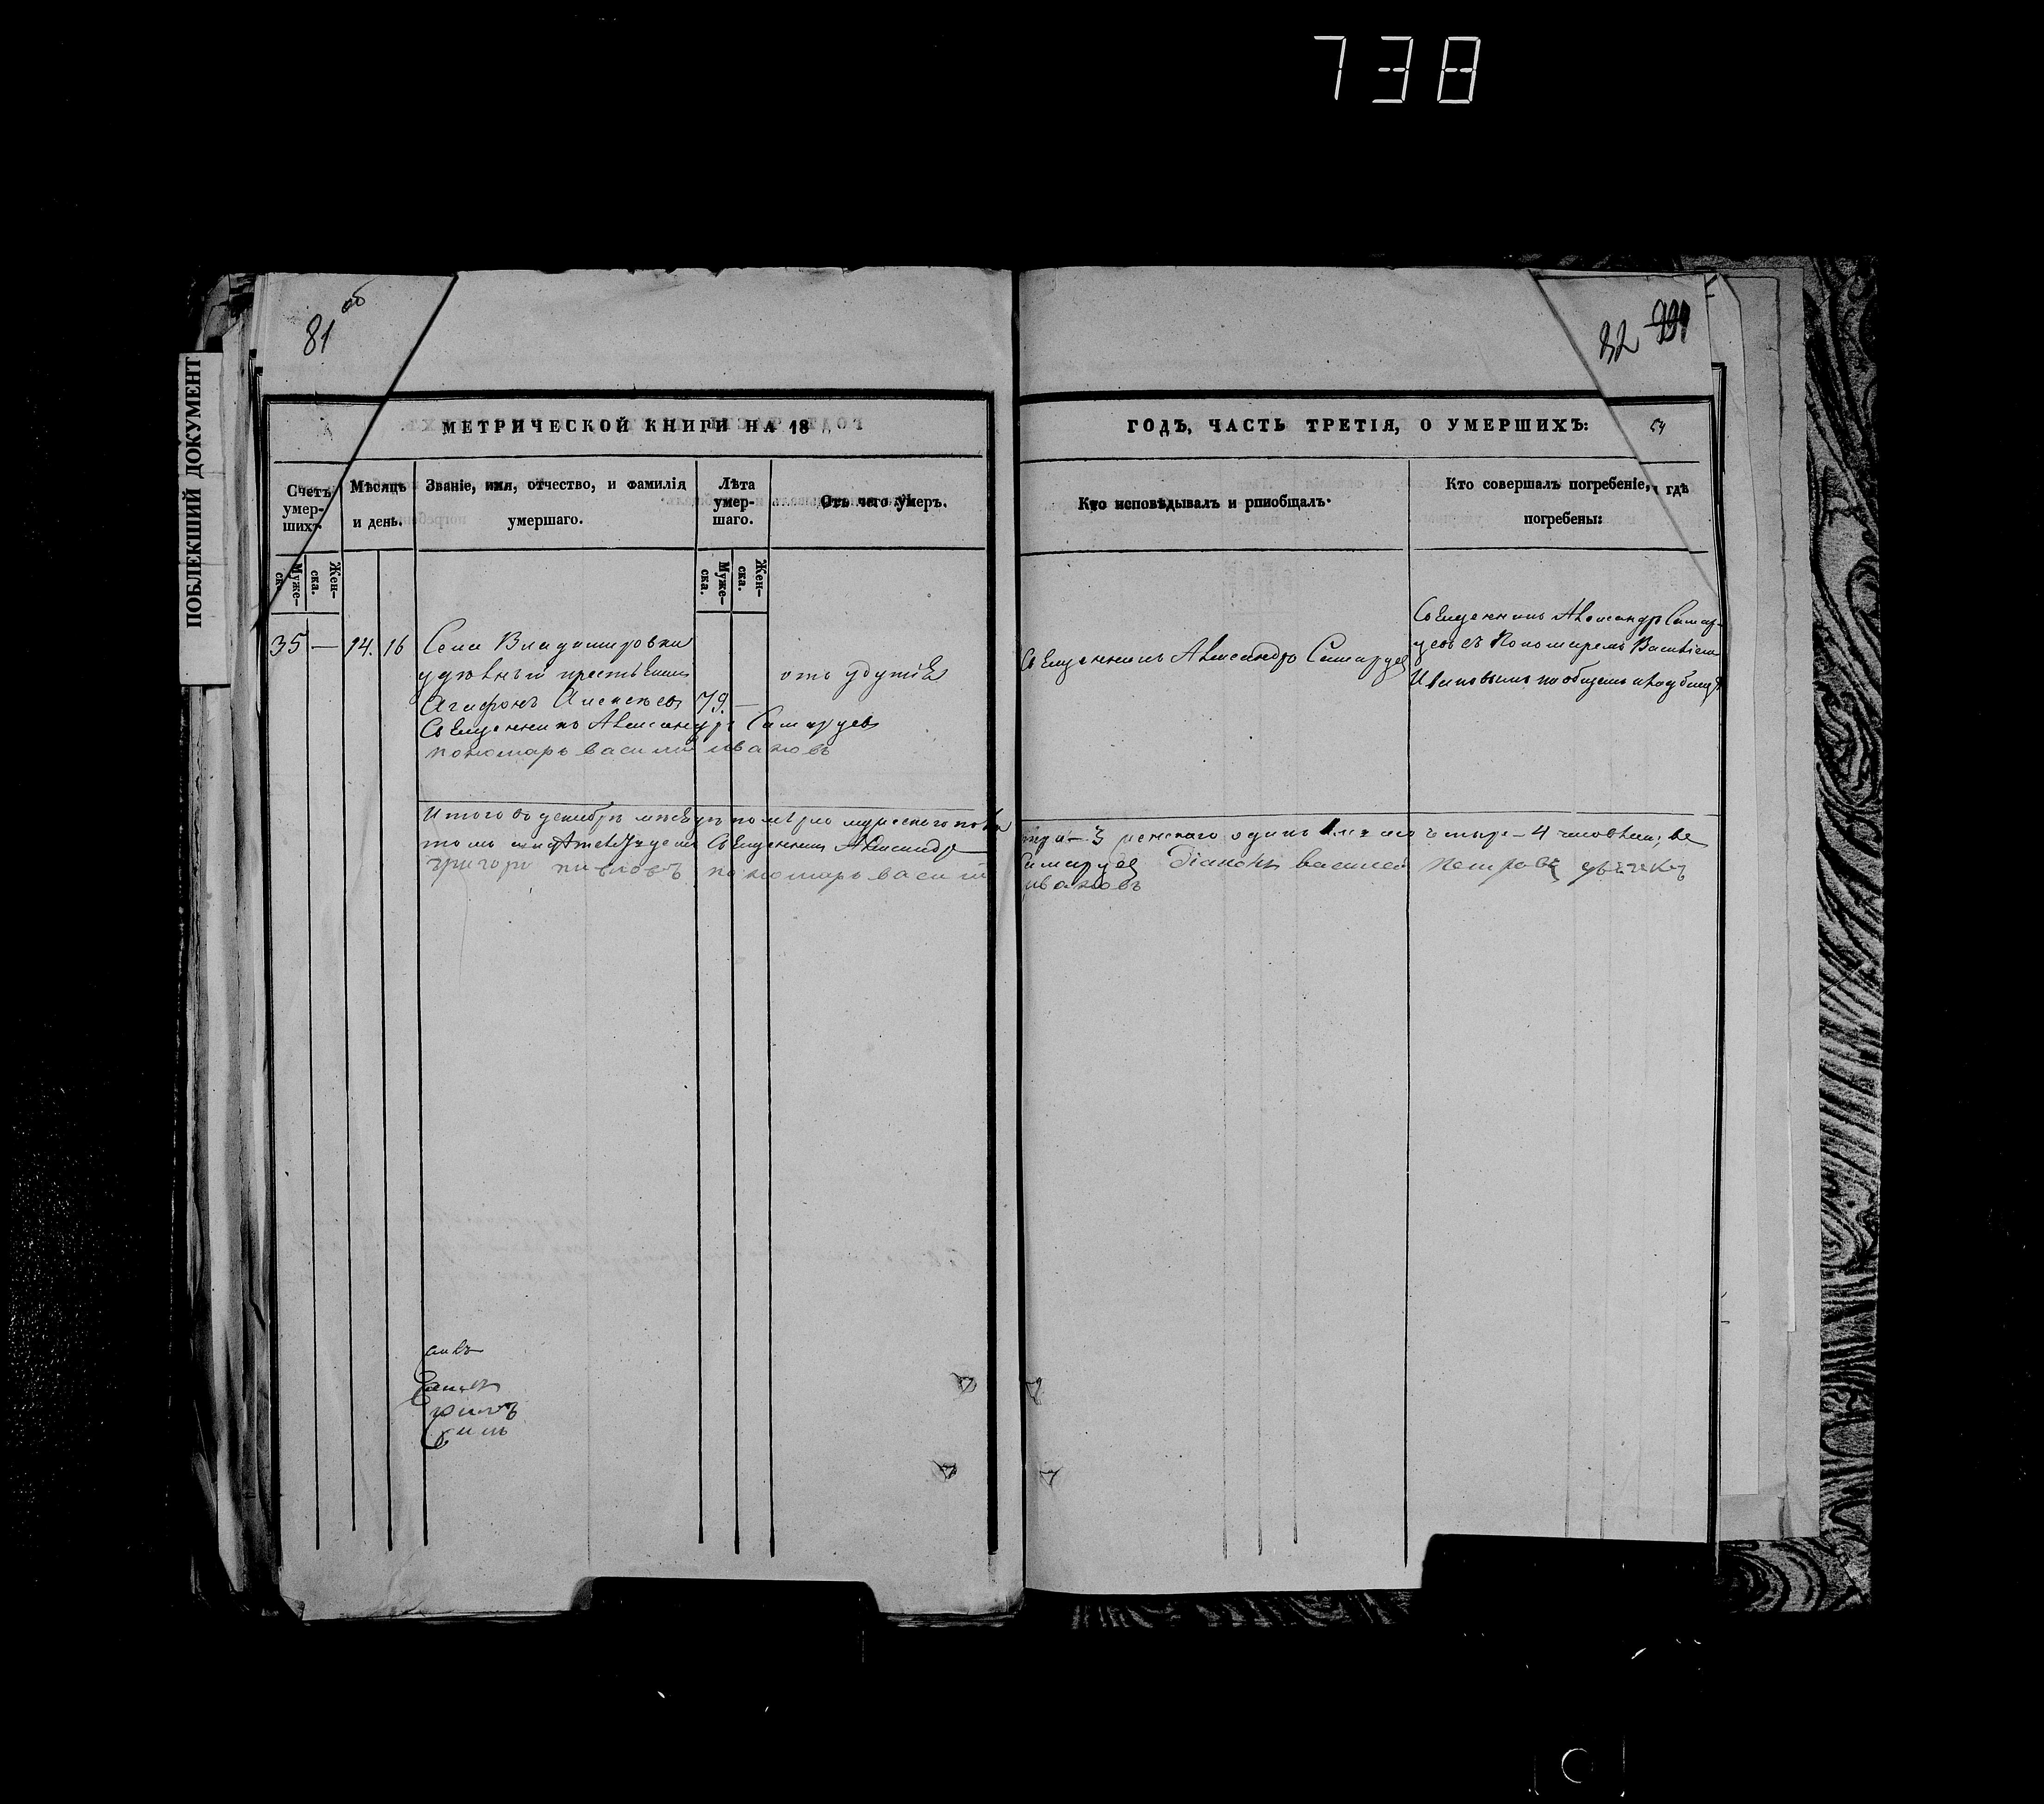 738
ПОБЛЕКШИЙ ДОКУМЕНТ
81 об
82
МЕТРИЧЕСКОЙ КНИГИ НА 18
ГОДЪ, ЧАСТЬ ТРЕТІЯ, О УМЕРШИХЪ:
Счетъ умерших.
Мѣсяцъ и день.
Званіе, имя, отчество, и фамилія умершаго.
Лѣта умершаго.
Отъ чего умеръ.
Кто исповѣдывалъ и рпиобщалъ.
Кто совершалъ погребеніе, и гдѣ погребены:
Муже-ска.
Жен-ска.
Муже-ска.
Жен-ска.
35 — 14. 16
Села Владимировки
удѣльный крестьянинъ
Агафонъ Алексѣевъ 79. —
отъ удушья
Священникъ Александръ Самарцевъ
пономарь василий ивановъ
Священникъ Александръ Самарцевъ
Священникъ Александръ Самар-
цевъ съ Пономаремъ Василіемъ
Ивановымъ на общемъ кладбищѣ
Итого въ декабрѣ мѣсяцѣ померло мужескаго пола
три – 3 женскаго одинъ 1 четыре – 4 человѣка; въ
томъ Священникъ Александръ
Самарцевъ Діаконъ василей петровъ дьячекъ
григори павловъ пономарь василий
ивановъ